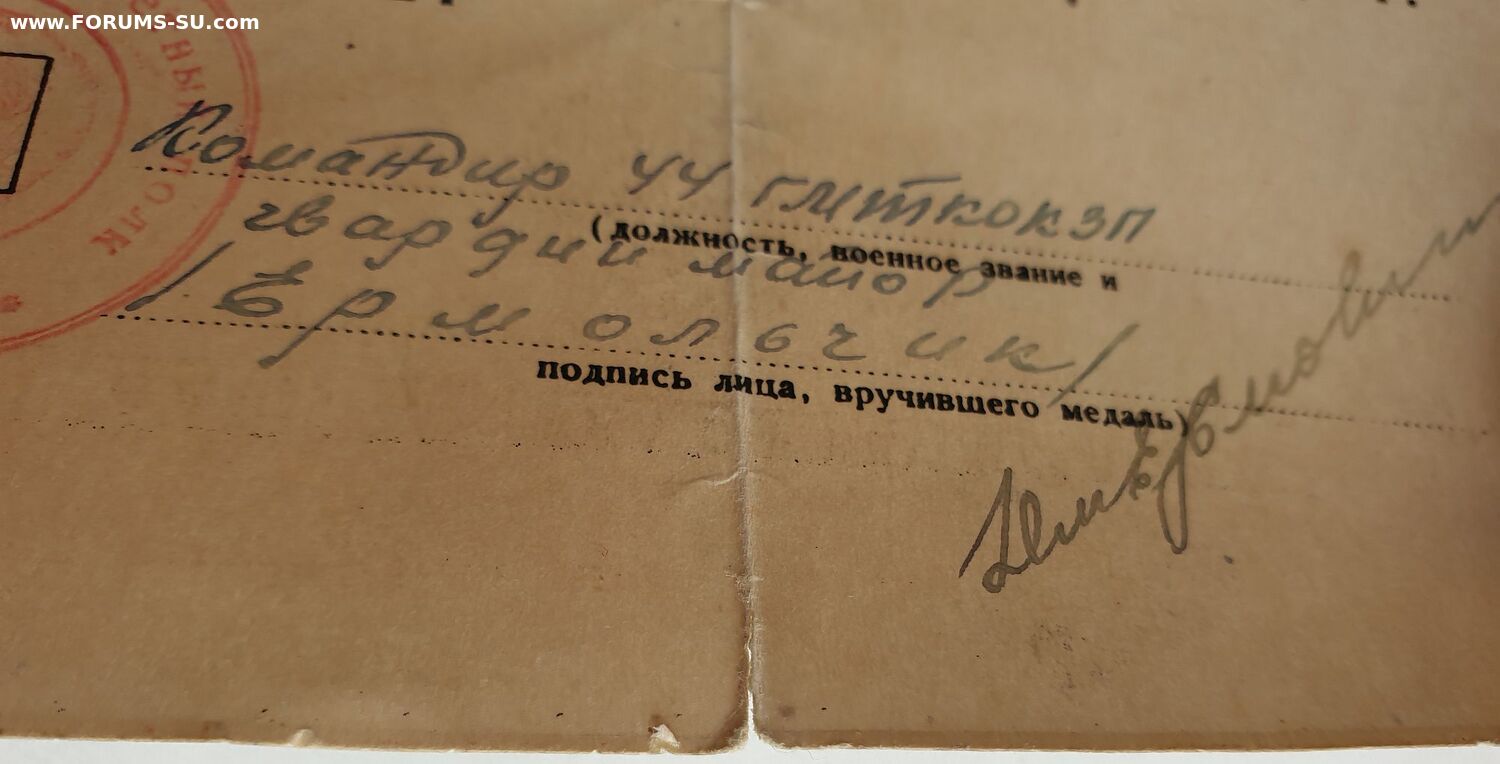 www.FORUMS-SU.com
ПОЛК
Командир 44 гмткокзп
(должность, военное звание и
гвардии майор
/Ермольчик/
подпись лица, вручившего медаль)